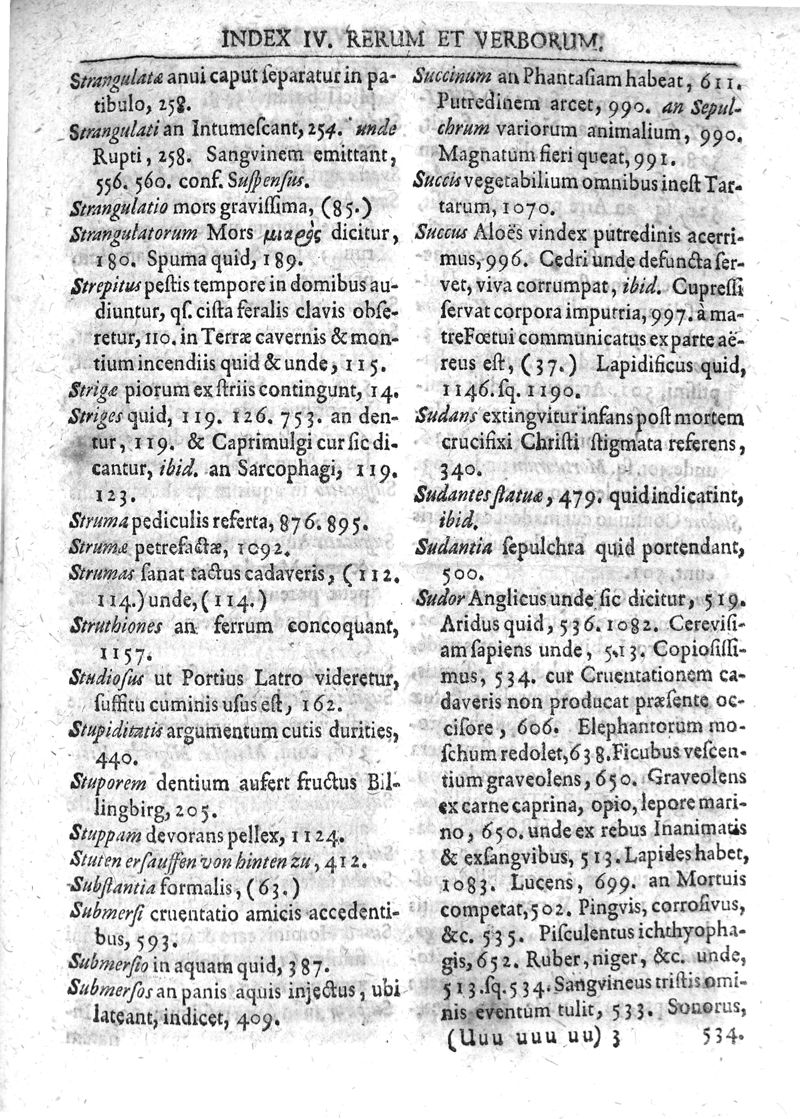 INDEX IV. RERUM ET VERBORUM.
Strangulatæ anui caput ſeparatur in pa-
tibulo, 258.
Strangulati an Intumeſcant, 254. unde
Rupti, 258. Sangvinem emittant,
556. 560. conf. Suſpenſus.
Strangulatio mors graviſſima, (85.)
Strangulatorum Mors μιαρὸς dicitur,
180. Spuma quid, 189.
Strepitus peſtis tempore in domibus au-
diuntur, qſ. ciſta feralis clavis obſe-
retur, 110. in Terræ cavernis & mon-
tium incendiis quid & unde, 115.
Strigæ piorum ex ſtriis contingunt, 14.
Striges quid, 119. 126. 753. an den-
tur, 119. & Caprimulgi cur ſic di-
cantur, ibid. an Sarcophagi, 119.
123.
Struma pediculis referta, 876. 895.
Strumæ petrefactæ, 1092.
Strumas ſanat tactus cadaveris, (112.
114.) unde, (114.)
Struthiones an ferrum concoquant,
1157.
Studioſus ut Portius Latro videretur,
ſuffitu cuminis uſus eſt, 162.
Stupiditatis argumentum cutis durities,
440.
Stuporem dentium aufert fructus Bil-
lingbirg, 205.
Stuppam devorans pellex, 1124.
Stuten erſauffen von hinten zu, 412.
Subſtantia formalis, (63.)
Submerſi cruentatio amicis accedenti-
bus, 593.
Submerſio in aquam quid, 387.
Submerſos an panis aquis injectus, ubi
lateant, indicet, 409.
Succinum an Phantaſiam habeat, 611.
Putredinem arcet, 990. an Sepul-
chrum variorum animalium, 990.
Magnatum fieri queat, 991.
Succis vegetabilium omnibus ineſt Tar-
tarum, 1070.
Succus Aloës vindex putredinis acerri-
mus, 996. Cedri unde defuncta ſer-
vet, viva corrumpat, ibid. Cupreſſi
ſervat corpora imputria, 997. à ma-
tre Fœtui communicatus ex parte aë-
reus eſt, (37.) Lapidificus quid,
1146. ſq. 1190.
Sudans extingvitur infans poſt mortem
crucifixi Chriſti ſtigmata referens,
340.
Sudantes ſtatuæ, 479. quid indicarint,
ibid.
Sudantia ſepulchra quid portendant,
500.
Sudor Anglicus unde ſic dicitur, 519.
Aridus quid, 536. 1082. Cereviſi-
am ſapiens unde, 513. Copioſiſſi-
mus, 534. cur Cruentationem ca-
daveris non producat præſente oc-
ciſore, 606. Elephantorum mo-
ſchum redolet, 638. Ficubus veſcen-
tium graveolens, 650. Graveolens
ex carne caprina, opio, lepore mari-
no, 650. unde ex rebus Inanimatis
& exſangvibus, 513. Lapides habet,
1083. Lucens, 699. an Mortuis
competat, 502. Pingvis, corroſivus,
&c. 535. Piſculentus ichthyopha-
gis, 652. Ruber, niger, &c. unde,
513. ſq. 534. Sangvineus triſtis omi-
nis eventum tulit, 533. Sonorus,
(Uuu uuu uu) 3 534.